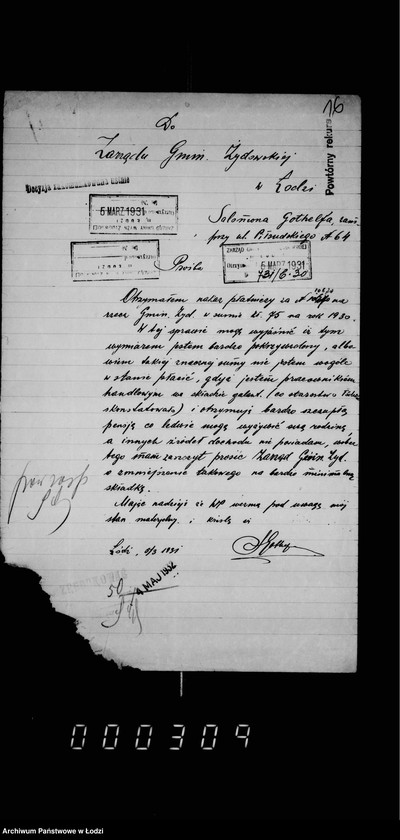 16
Do
Zarządu Gmin. Żydowskiej
w Łodzi
Powtórny rekurs
Decyzja zakomunikowana ustnie
5 MARZ 1931
Salomona Gothelfa, zam.
przy ul. Piłsudskiego № 64
5 MARZ 1931
ZARZĄD
5 MARZ 1931
731/6-30
Prośba
Otrzymałem nakaz płatniczy za № na
rzecz Gmin. Żyd. w sumie zł. 75 na rok 1930.
W tej sprawie mogę wyjaśnić iż tym
wymiarem jestem bardzo pokrzywdzony, albo
wiem takiej znacznej sumy nie jestem wogóle
w stanie płacić, gdyż jestem pracownikiem
handlowym we składzie galant. (co
) i otrzymuję bardzo szczupłą
pensję co ledwie mogę wyżywić swą rodzinę,
a innych źródeł dochodu nie posiadam, wobec
tego mam zaszczyt prosić Zarząd Gmin. Żyd.
o zmniejszenie takowego na bardzo minimalną
składkę.
Mając nadzieję że WP wezmą pod uwagę mój
stan materjalny, i kreślę się
Łódź, 5/3 1931
SGothelf
50
4 MAJ 1932
000309
Archiwum Państwowe w Łodzi